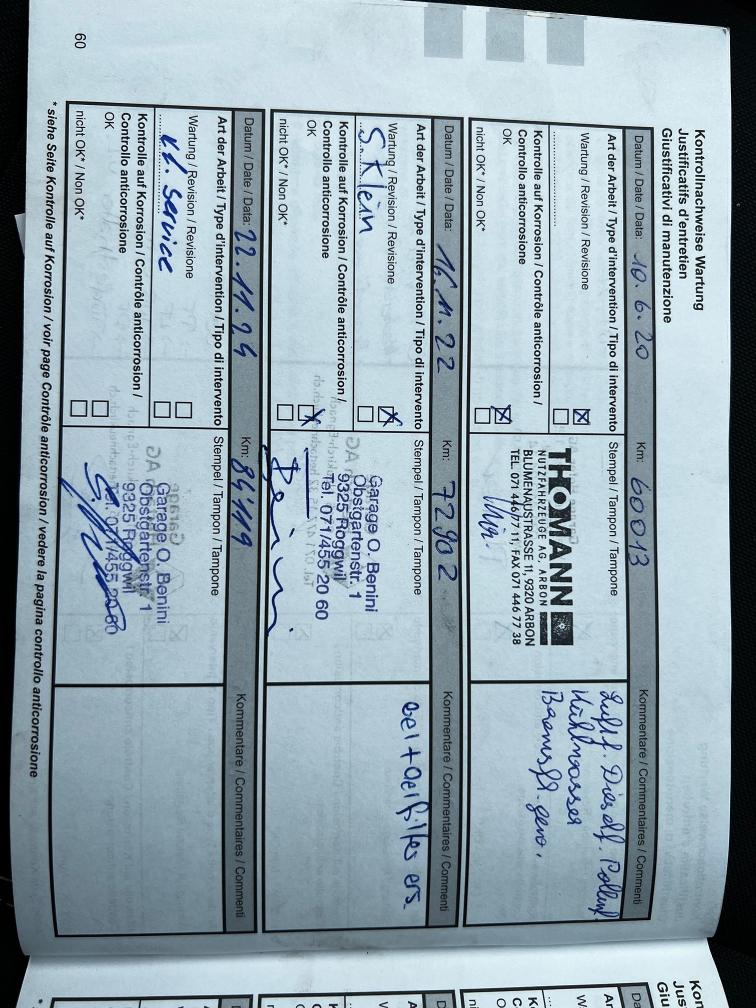 Kontrollnachweise Wartung
Justificatifs d'entretien
Giustificativi di manutenzione
Datum / Date / Data: 10.6.20 Km: 60013 Kommentare / Commentaires / Commenti
Art der Arbeit / Type d'intervention / Tipo di intervento Stempel / Tampon / Tampone
Wartung / Revision / Revisione
Kontrolle auf Korrosion / Contrôle anticorrosion /
Controllo anticorrosione
OK
nicht OK* / Non OK*
THOMANN
NUTZFAHRZEUGE AG, ARBON
BLUMENAUSTRASSE 11, 9320 ARBON
TEL. 071 446 77 11, FAX 071 446 77 38
Luftf. Dieself. Pollenf.
Kühlwasser
Bremsfl. gew.
Datum / Date / Data: 16.11.22 Km: 72902 Kommentare / Commentaires / Commenti
Art der Arbeit / Type d'intervention / Tipo di intervento Stempel / Tampon / Tampone
Wartung / Revision / Revisione
S. Klein
Kontrolle auf Korrosion / Contrôle anticorrosion /
Controllo anticorrosione
OK
nicht OK* / Non OK*
Garage O. Benini
Obstgartenstr. 1
9325 Roggwil
Tel. 071/455 20 60
Benini
oel + oelfilter ers.
Datum / Date / Data: 22.11.24 Km: 84'119 Kommentare / Commentaires / Commenti
Art der Arbeit / Type d'intervention / Tipo di intervento Stempel / Tampon / Tampone
Wartung / Revision / Revisione
kl. service
Kontrolle auf Korrosion / Contrôle anticorrosion /
Controllo anticorrosione
OK
nicht OK* / Non OK*
Garage O. Benini
Obstgartenstr. 1
9325 Roggwil
Tel. 071/455 20 60
* siehe Seite Kontrolle auf Korrosion / voir page Contrôle anticorrosion / vedere la pagina controllo anticorrosione
60